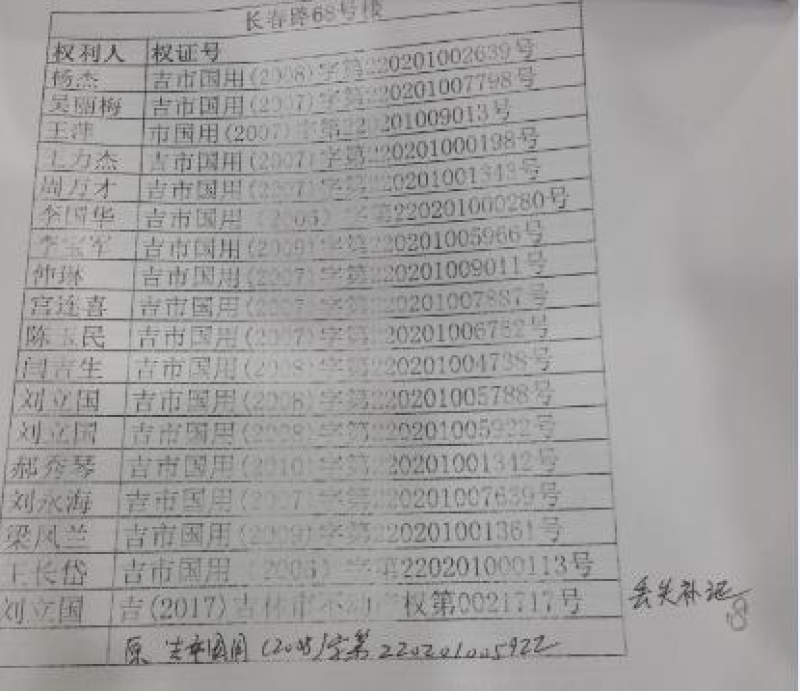 长春路68号楼
权利人 权证号
杨杰 吉市国用(2008)字第220201002639号
吴丽梅 吉市国用(2007)字第220201007798号
王萍 市国用(2007)字第220201009013号
王力杰 吉市国用(2007)字第220201000198号
周万才 吉市国用(2007)字第220201001343号
李国华 吉市国用(2006)字第220201000280号
李宝军 吉市国用(2009)字第220201005966号
仲琳 吉市国用(2007)字第220201009011号
宫连喜 吉市国用(2007)字第220201007837号
陈玉民 吉市国用(2007)字第220201006782号
闫吉生 吉市国用(2008)字第220201004738号
刘立国 吉市国用(2008)字第220201005788号
刘立国 吉市国用(2008)字第220201005922号
郝秀琴 吉市国用(2010)字第220201001342号
刘永海 吉市国用(2007)字第220201007639号
梁凤兰 吉市国用(2009)字第220201001361号
王长岱 吉市国用(2006)字第220201000113号
刘立国 吉(2017)吉林市不动产权第0021717号 丢失补记
原 吉市国用(2008)字第220201005922